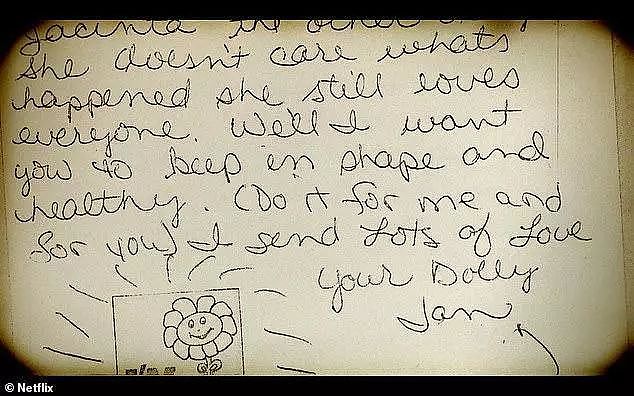 Jacinta the other
She doesn't care whats
happened she still loves
everyone. Well I want
you to keep in shape and
healthy. (Do it for me and
for you) I send Lots of Love
Your Dolly
Jan
© Netflix